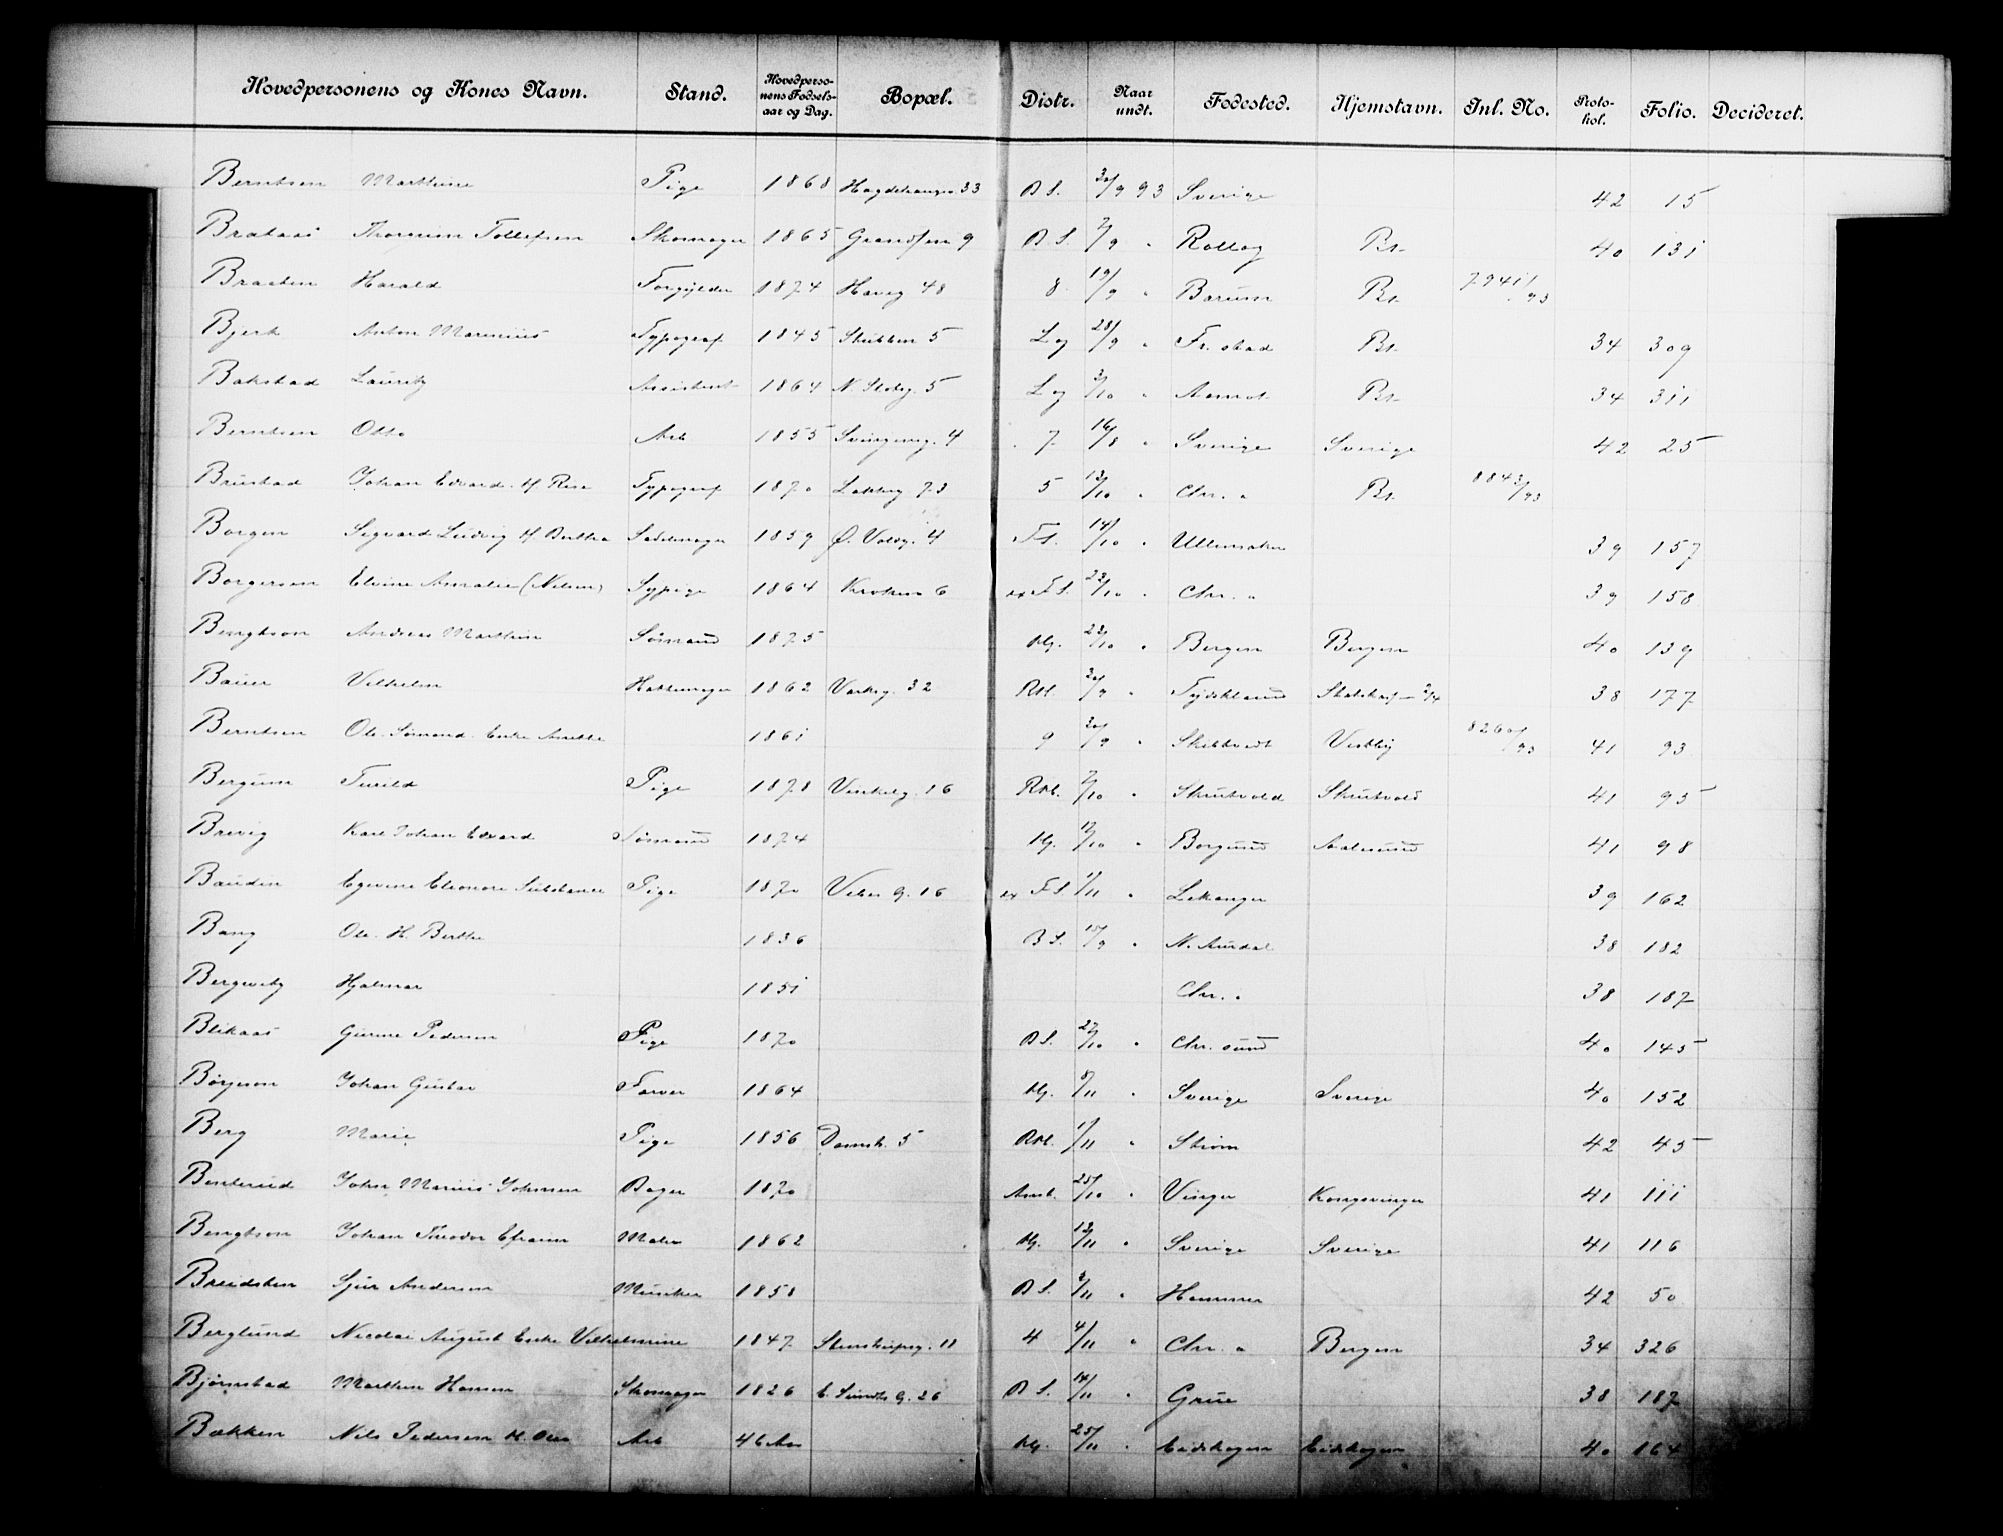 Hovedpersonens og Kones Navn. Stand. Hovedpersonens Fødselsaar og Dag. Bopæl. Distr. Naar undt. Fødested. Hjemstavn. Inl. No. Protokol. Folio. Decideret.
Berntsen Marthine Pige 1868 33 B S. 30/9 93 Sverige 42 15
Brataas Tollefsen Skomager 1865 9 B S. 7/9 " Rollag Bt. 40 131
Braaten Harald Forgylder 1874 48 8 19/9 " Bærum Bt. 7941/93
Bjerk Anton Marinius Typograf 1845 Stubben 5 Lg 28/9 " Fr. stad Bt. 34 309
Bakstad Lauritz Assistent 1864 N. Slotsg. 5 Lg 3/10 " Aamot Bt. 34 311
Berntsen Otto Arb 1855 Svingenvg. 4 7 16/8 " Sverige Sverige 42 25
Brustad Johan Edvard Typograf 1870 Lakkeg 73 5 13/10 " Chr. a Bt. 8843/93
Borgen Sigvard Ludvig H. Berthe Sadelmager 1859 Ø. Voldg. 4 F S. 14/10 " Ullensaker 39 157
Borgersen Elvine Amalie (Nilsen) Sypige 1864 Kroken 6 ex F S. 23/10 " Chr. a 39 158
Bengtson Andreas Marthin Sømand 1875 Hg. 23/10 " Bergen Bergen 40 139
Bauer Vilhelm Hattemager 1862 32 RM. 30/9 " Tydskland 38 177
Berntsen Ole Sømand Enke Anette 1861 9 30/9 " Skibtvedt Vestby 8260/93 41 93
Bergum Turild Pige 1878 Vinkelg. 16 RM. 7/10 " Skrutvold Skrutvold 41 95
Brevig Karl Johan Edvard Sømand 1874 Hg. 17/10 " Borgund Aalesund 41 98
Baudin Eleonore Pige 1870 G. 16 ex F S. 1/11 " Lekanger 39 162
Bang Ole H. Berthe 1836 B S. 15/9 " N. Aurdal 38 182
Bergwitz Hjalmar 1851 Chr. a 38 187
Blikaas Gurine Pedersen Pige 1870 B S. 27/10 " Chr. sund 40 145
Børjeson Johan Gustav Farver 1864 Hg. 8/11 " Sverige Sverige 40 152
Berg Marie Pige 1856 Damstr. 5 RM. 1/11 " Strøm 42 45
Benterud John Marius Johnsen Bager 1870 Amt. 25/10 " Vinger Kongsvinger 41 111
Bengtson Johan Theodor Efraim Maler 1862 Hg. 13/11 " Sverige Sverige 41 116
Breidsten Sjur Andersen Musiker 1858 B S. 3/11 " Hammer 42 50
Berglund Nicolai August Enke Vilhelmine 1847 Stenstrupsg. 11 4 4/11 " Chr. a Bergen 34 326
Bjørnstad Marthin Hansen Skomager 1826 E. Sundts G. 26 B S. 14/11 " Grue 38 187
Bækken Nils Pedersen Arb 46 Aar Hg. 25/11 " Eidskogen Eidskogen 40 164